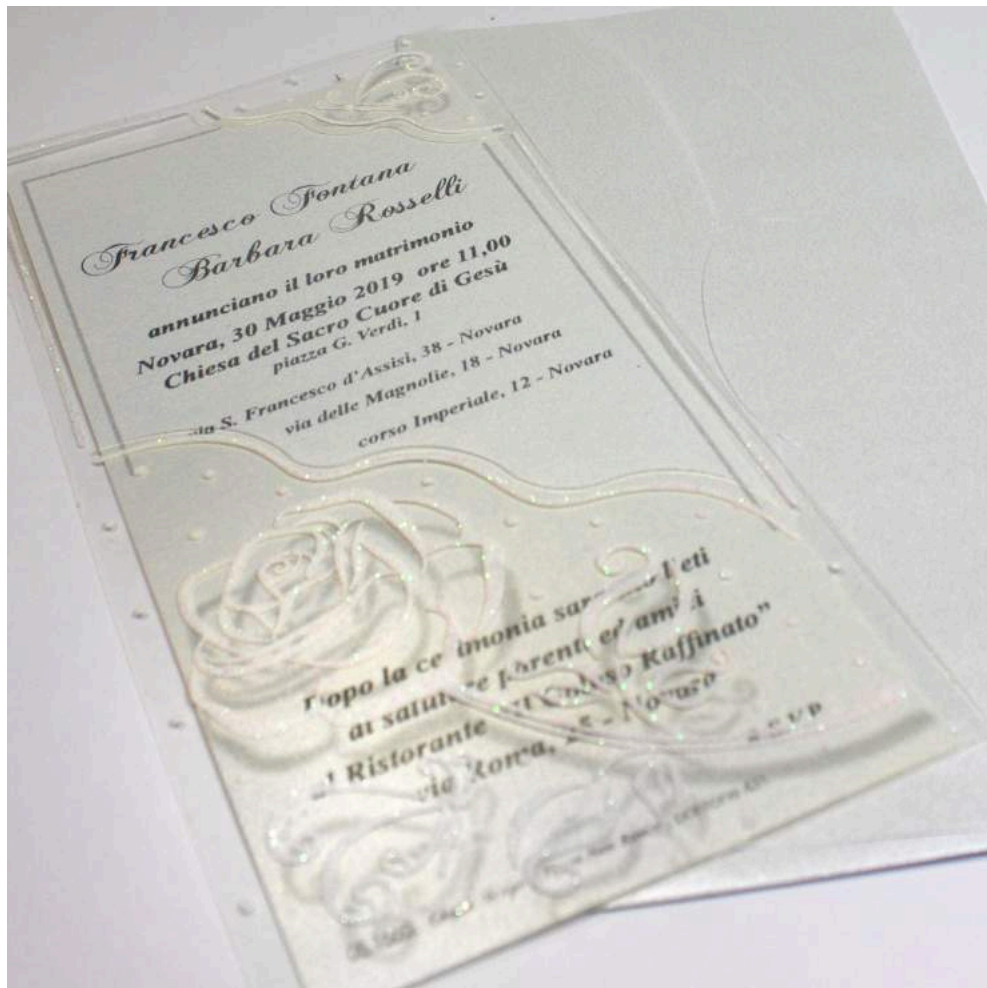 Francesco Fontana
Barbara Rosselli
annunciano il loro matrimonio
Novara, 30 Maggio 2019 ore 11,00
Chiesa del Sacro Cuore di Gesù
piazza G. Verdi, 1
S. Francesco d'Assisi, 38 - Novara
via delle Magnolie, 18 - Novara
corso Imperiale, 12 - Novara
Dopo la cerimonia saranno lieti
di salutare parenti ed amici
al Ristorante Raffinato"
via Roma, - Novara